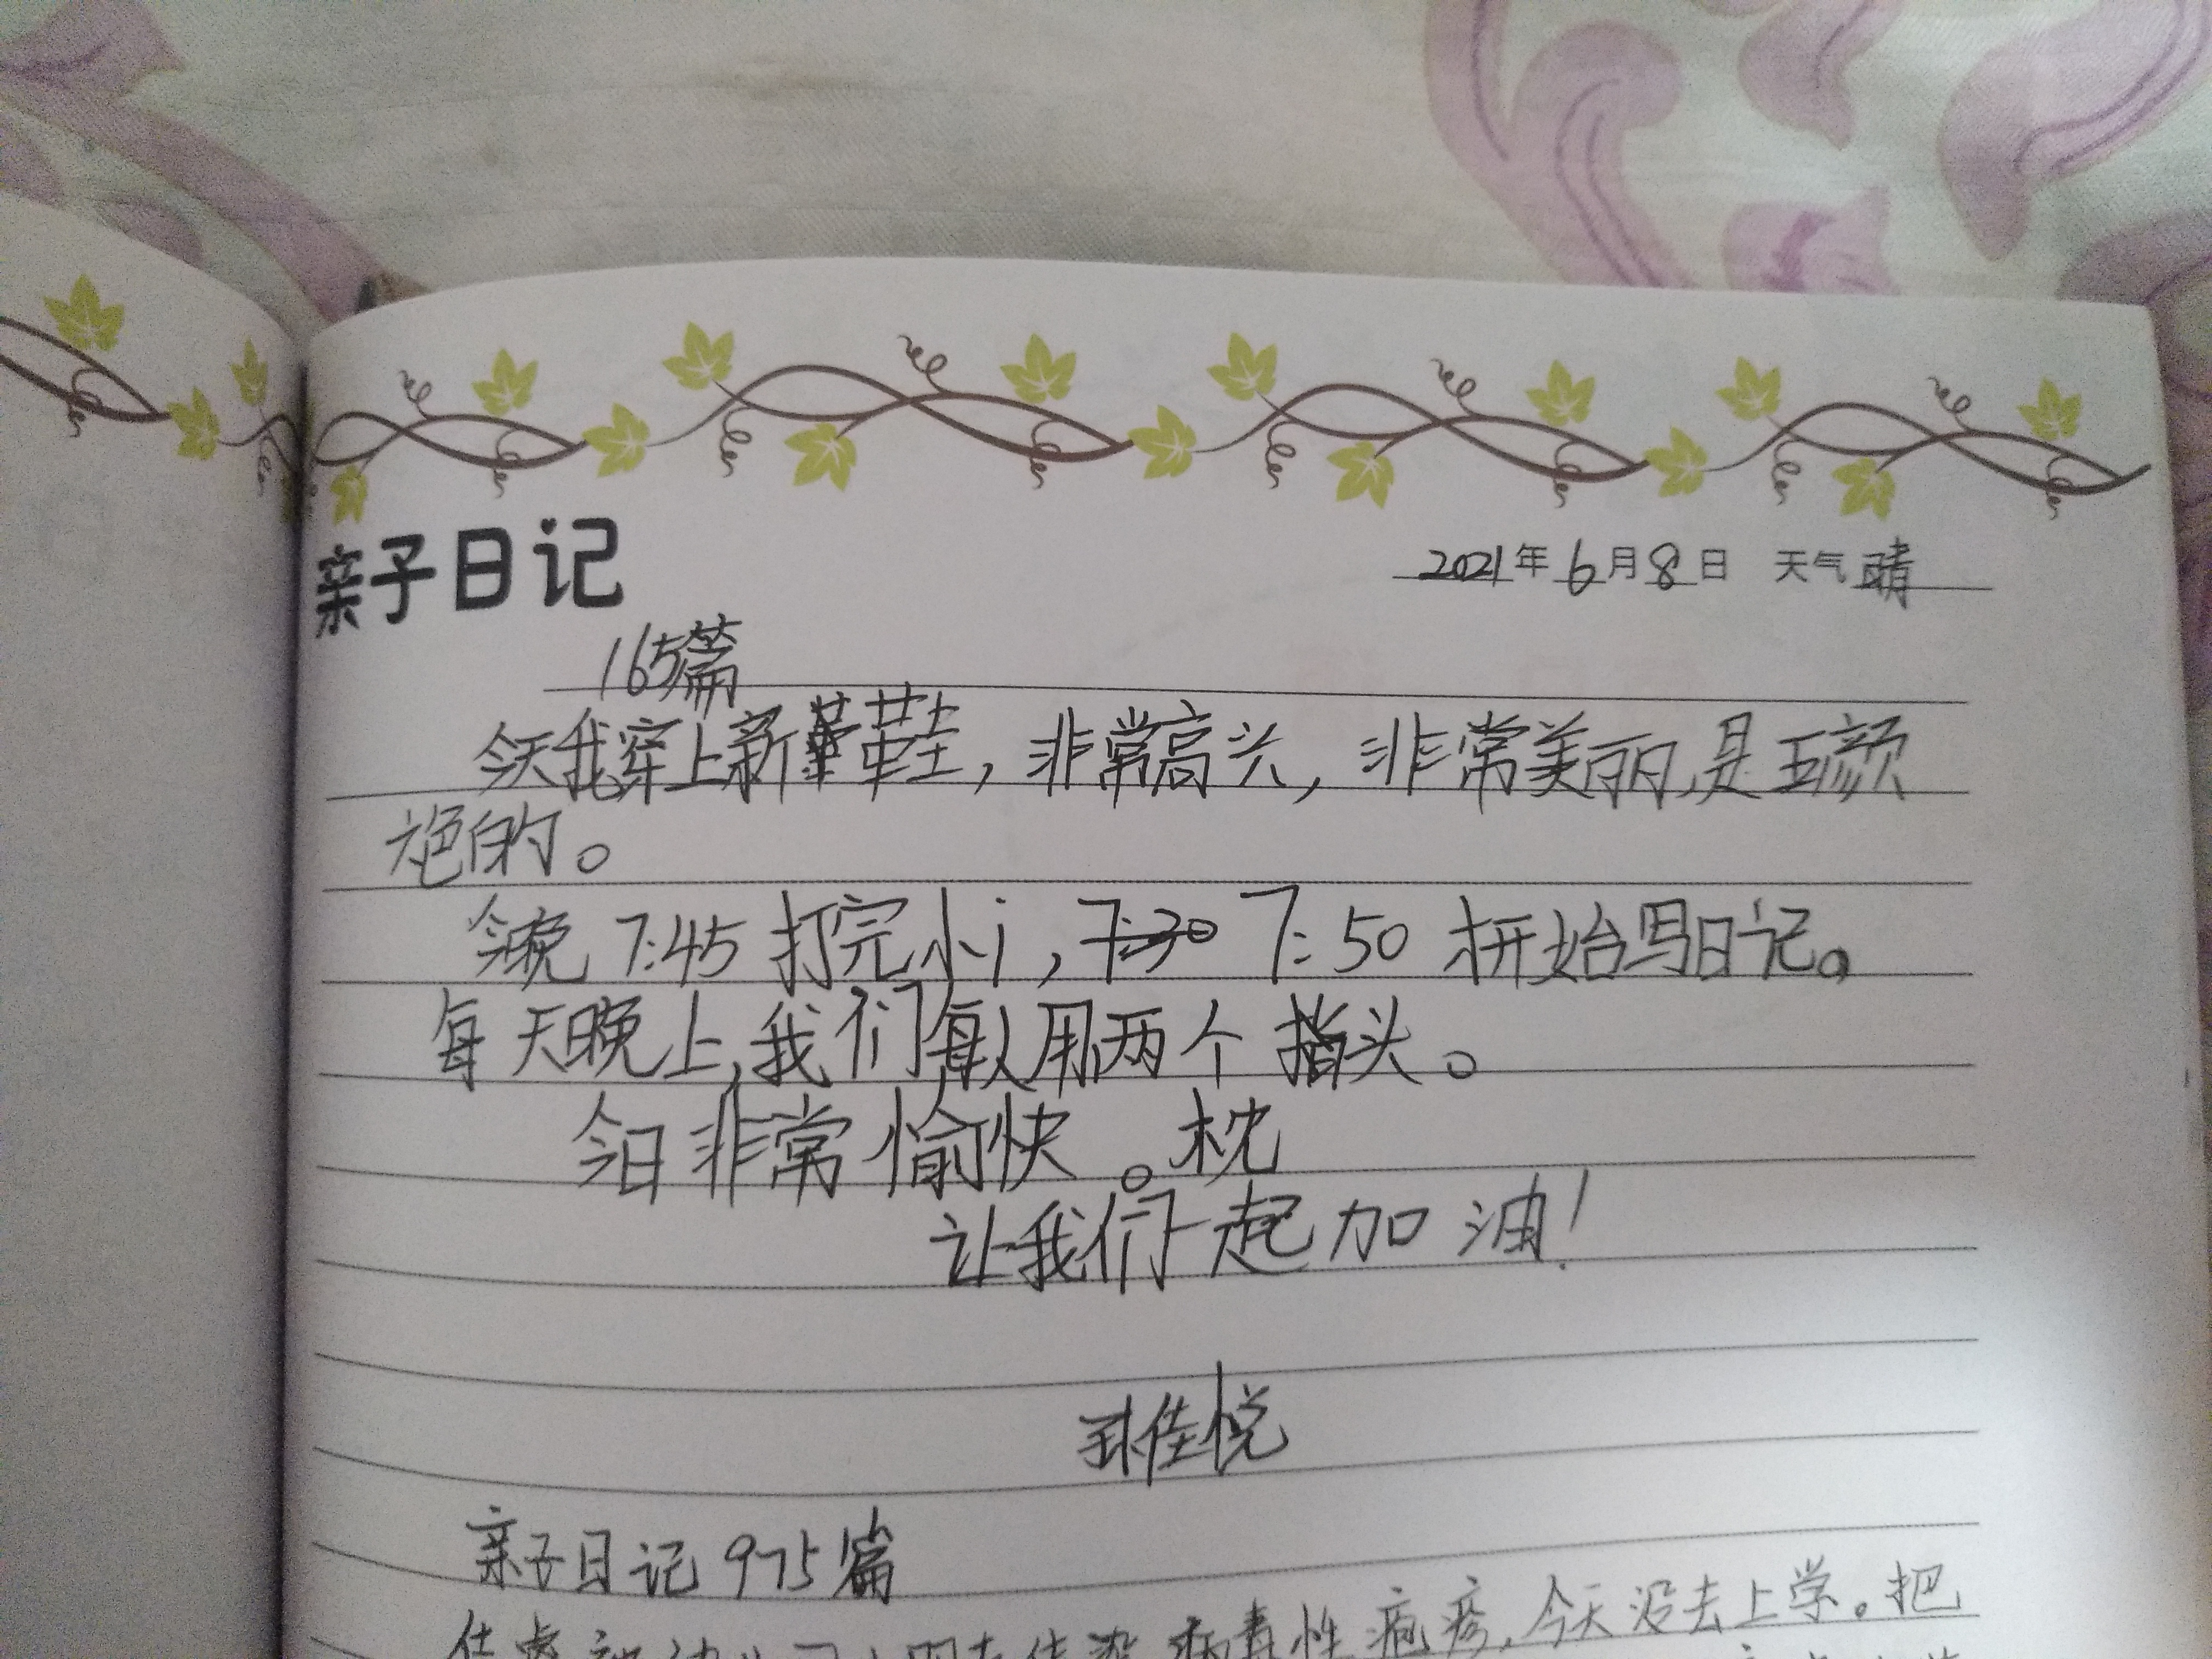 亲子日记
2021年6月8日 天气晴
165篇
今天我穿上新鞋,非常高兴,非常美丽,是五颜
六色的。
今晚 7:45 打完小i,7:30 7:50 才开始写日记。
每天晚上,我们每人用两个指头。
今日非常愉快。枕
让我们一起加油!
佳悦
亲子日记 975篇
病毒性疱疹,今天没去上学。把